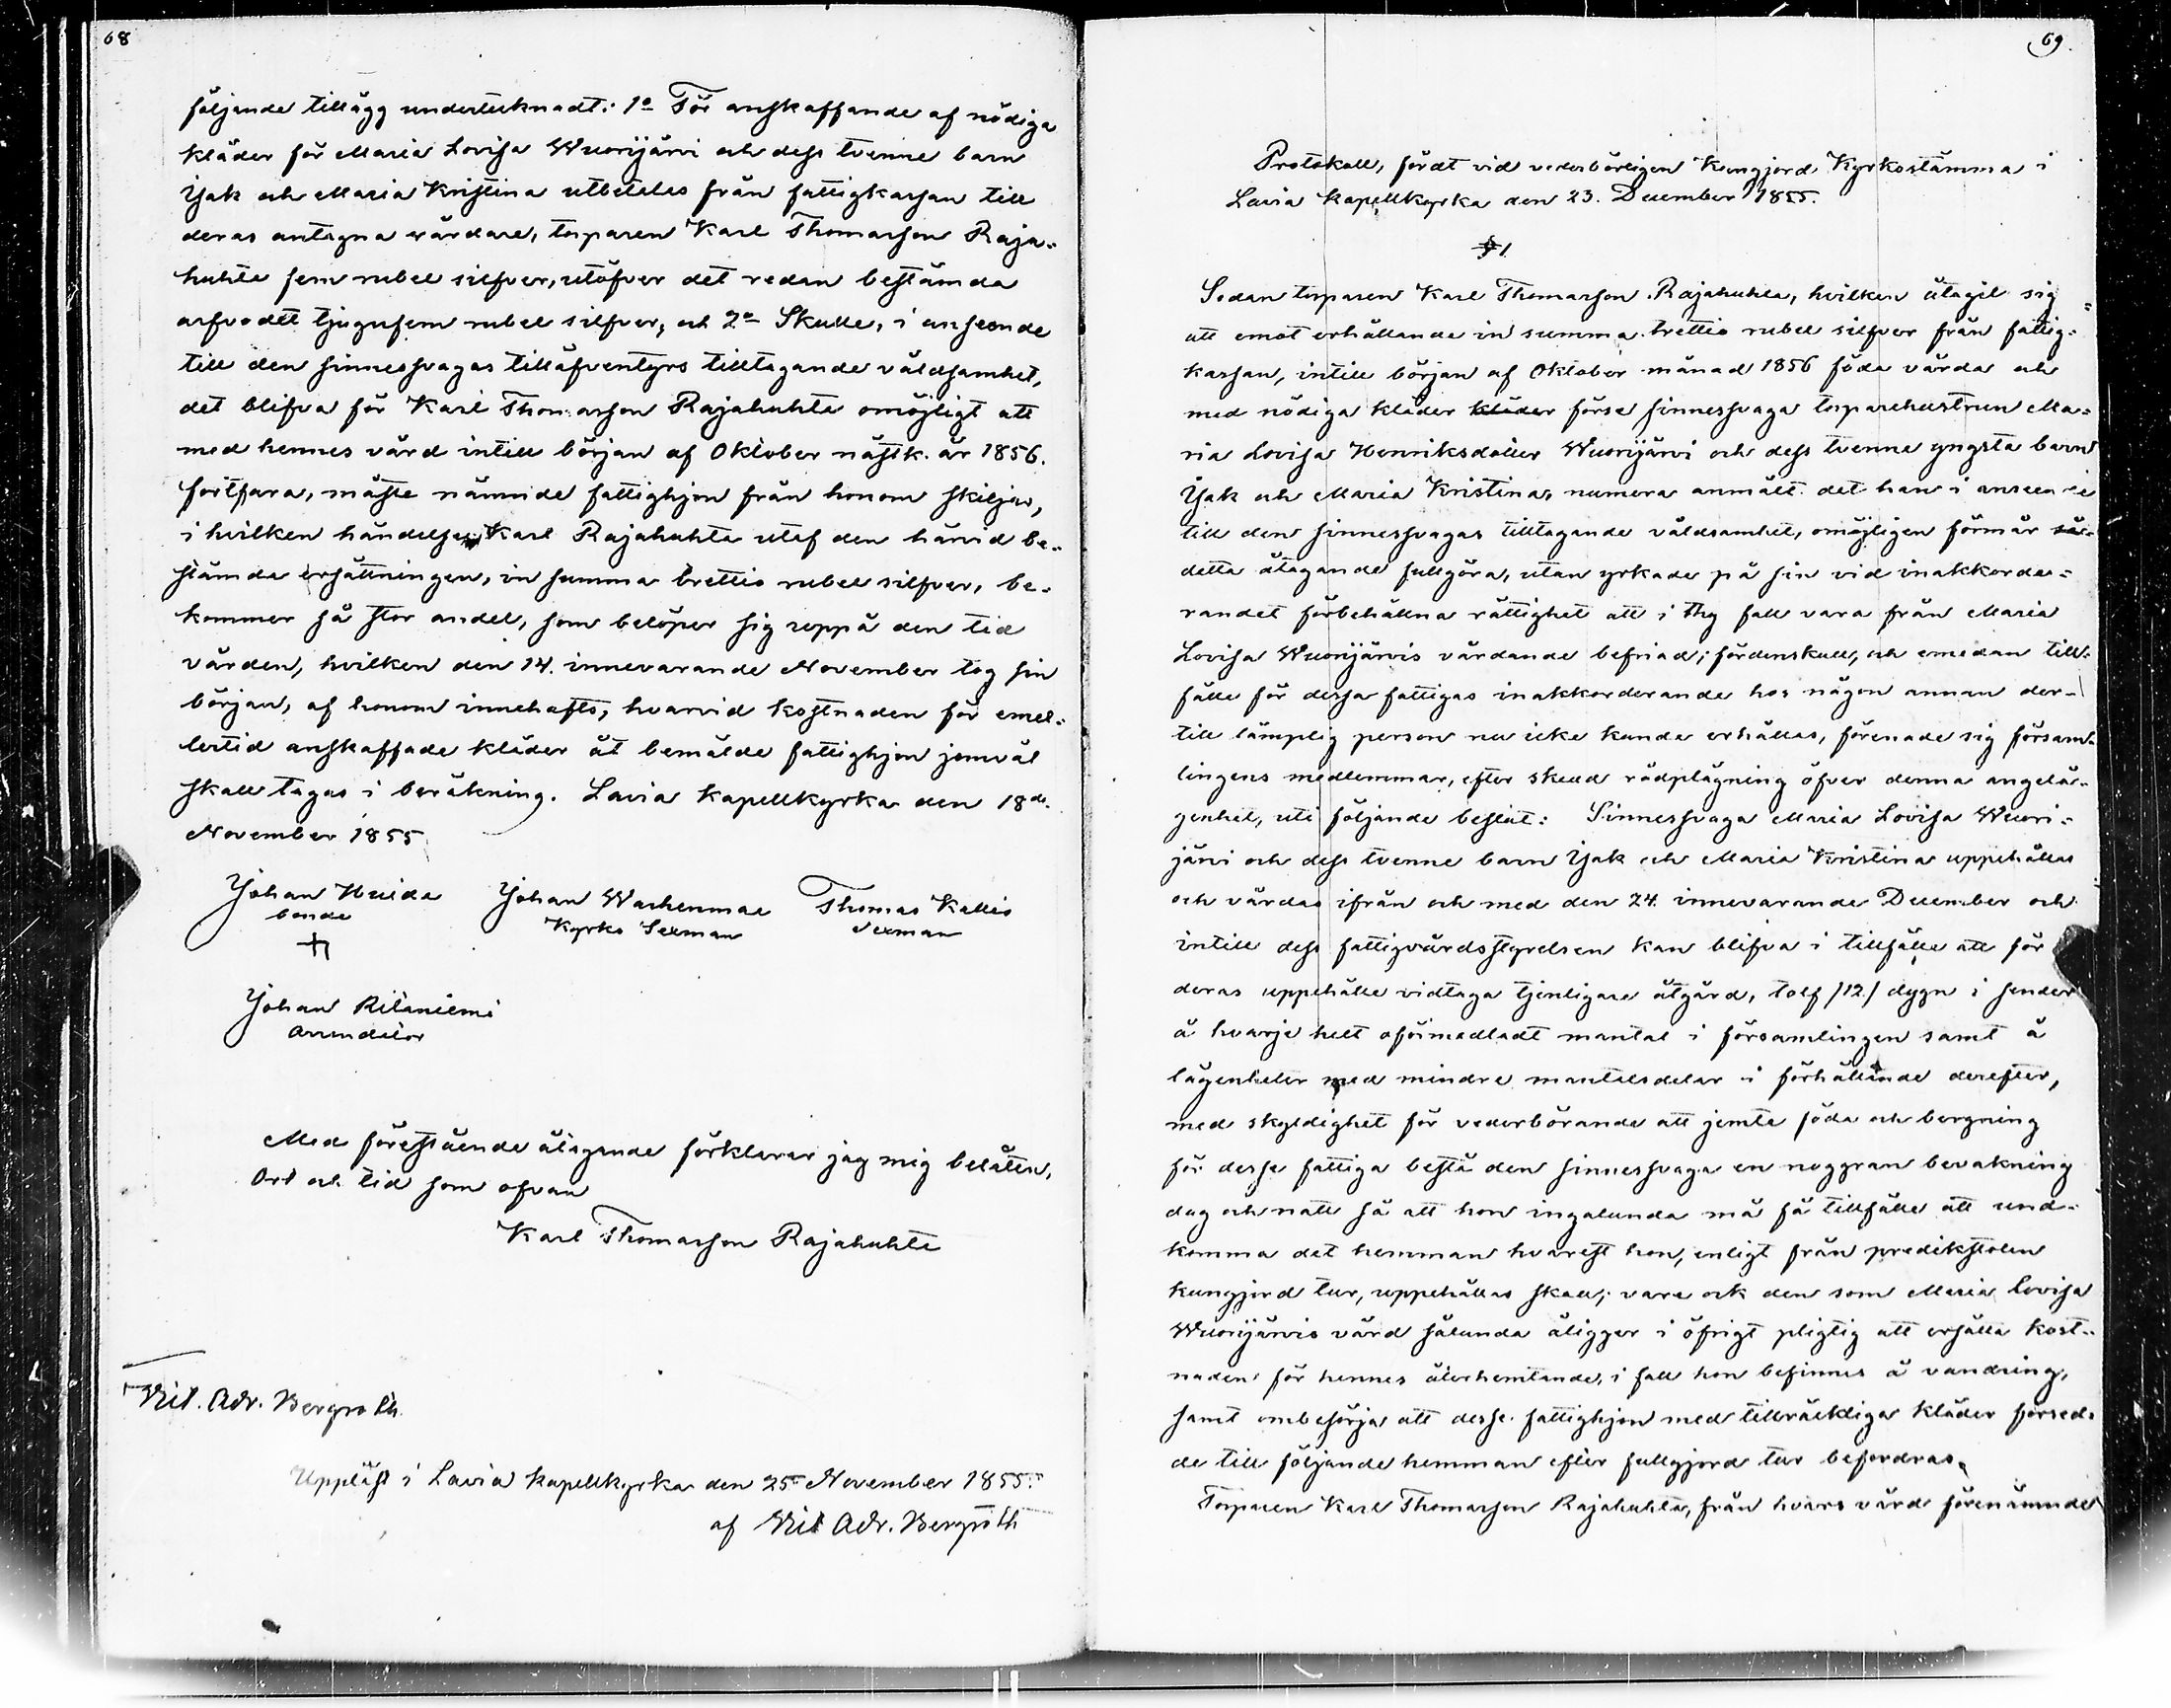 68
följande tillägg undertecknadt: 1o För anskaffande af nödiga
kläder för Maria Lovisa Wuorijärvi och dess tvenne barn
Isak och Maria Kristina utbetales från fattigkassan till
deras antagna vårdare, torparen Karl Thomasson Raja-
huhta fem rubel silfver, utöfver det redan bestämda
arfvodet tjugufem rubel silfver, och 2o Skulle, i anseende
till den sinnessvagas tilläfventyrs tilltagande våldsamhet,
det blifva för Karl Thomasson Rajahuhta omöjligt att
med hennes vård intill början af Oktober nästk. år 1856.
fortfara, måste nämnde fattighjon från honom skiljas,
i hvilken händelse Karl Rajahuhta utaf den härvid be-
stämda ersättningen, in summa trettio rubel silfver, be-
kommer så stor andel, som belöper sig uppå den tid
vården, hvilken den 14. innevarande November tog sin
början, af honom innehafts, hvarvid kostnaden för emel-
lertid anskaffade kläder åt bemälde fattighjon jemväl
skall tagas i beräkning. Lavia Kapellkyrka den 18de
November 1855.
Johan Huida Johan Wachenmaa Thomas Kallio
bonde Kyrko Sexman Sexman
Johan Ritaniemi
Arrendator
Med förestående åtagande förklarar jag mig belåten,
Ort och tid som ofvan
Karl Thomasson Rajahuhta
Vit. Adr. Bergroth.
Uppläst i Lavia Kapellkyrka den 25 November 1855.
af Vit Adr. Bergroth
69.
Protokoll, fördt vid vederbörligen Kungjord Kyrkostämma i
Lavia Kapellkyrka den 23. December 1855.
§ 1
Sedan torparen Karl Thomasson Rajahuhta, hvilken åtagit sig
att emot erhållande in summa trettio rubel silfver från fattig-
kassan, intill början af Oktober månad 1856 föda vårda och
med nödiga kläder kläder förse sinnessvaga torparehustrun Ma-
ria Lovisa Henriksdotter Wuorijärvi och dess tvenne yngsta barn
Isak och Maria Kristina, numera anmält det han i anseende
till den sinnessvagas tilltagande våldsamhet, omöjligen förmår
detta åtagande fullgöra, utan yrkade på sin vid inakkorde-
randet förbehållna rättighet att i thy fall vara från Maria
Lovisa Wuorijärvis vårdande befriad; fördenskull, och emedan till-
fälle för dessa fattigas inakkorderande hos någon annan der-
till lämplig person nu icke kunde erhållas, förenade sig försam-
lingens medlemmar, efter skedd rådplägning öfver denna angelä-
genhet, uti följande beslut: Sinnessvaga Maria Lovisa Wuori-
järvi och dess tvenne barn Isak och Maria Kristina uppehållas
och vårdas ifrån och med den 24. innevarande December och
intill dess fattigvårdsstyrelsen kan blifva i tillfälle att för
deras uppehälle vidtaga tjenligare åtgärd, tolf /12/ dygn i sender
å hvarje helt oförmedladt mantal i församlingen samt å
lägenheter med mindre mantalsdelar i förhållande derefter,
med skyldighet för vederbörande att jemte föda och bergning
för desse fattiga bestå den sinnessvaga en noggran bevakning
dag och natt så att hon ingalunda må få tillfälle att und-
komma det hemman hvarest hon, enligt från predikstolen
kungjord tur, uppehållas skall; vare ock den som Maria Lovisa
Wuorijärvis vård sålunda åligger i öfrigt pligtig att ersätta kost-
naden för hennes återhemtande, i fall hon befinnes å vandring,
samt ombesörja att desse fattighjon med tillräckliga kläder försed-
de till följande hemman efter fullgjord tur befordras.
Torparen Karl Thomasson Rajahuhta, från hvars vård förenämnde